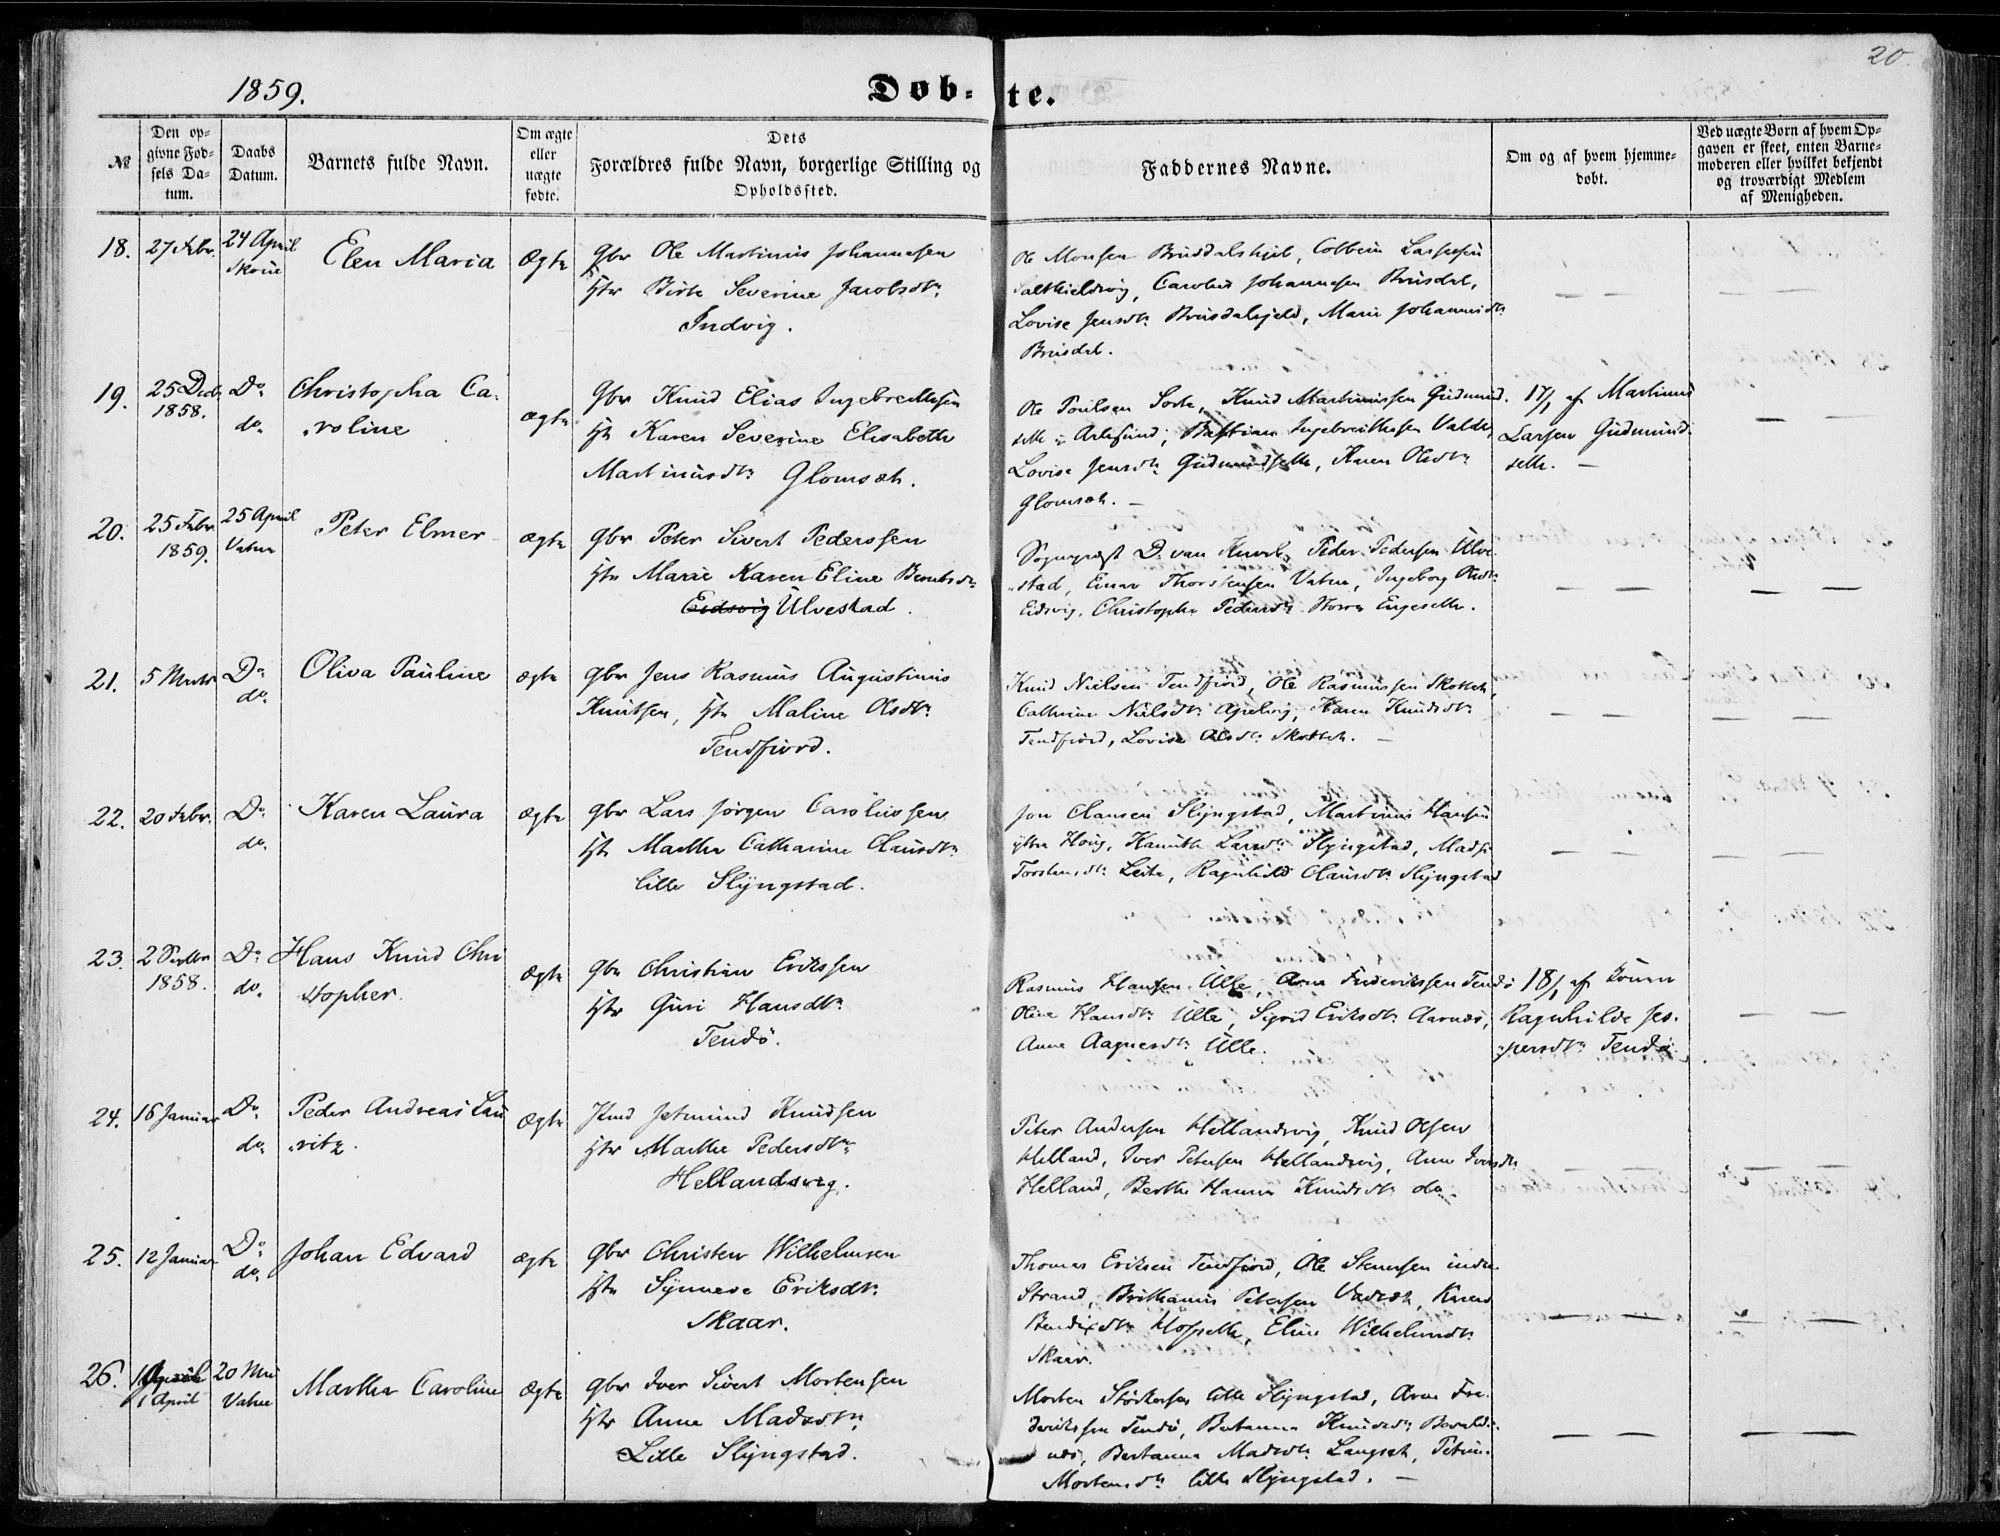 20.
1859.
Døb-te.
№
Den op-
givne Fød-
sels Da-
tum.
Daabs
Datum.
Barnets fulde Navn.
Om ægte
eller
uægte
fødte.
Dets
Forældres fulde Navn, borgerlige Stilling og
Opholdssted.
Faddernes Navne.
Om og af hvem hjemme-
døbt.
Ved uægte Børn af hvem Op-
gaven er skeet, enten Barne-
moderen eller hvilket bekjendt
og troværdigt Medlem
af Menigheden.
18. 27 Febr. 24 April
Skoue
Elen Maria
Ægte
Gbr Ole Martinus Johannesen
Hst Birte Severine Jacobsdtr
Indvig.
Ole Monsen Brusdalshjel, Colbein Lassesen
Carolus Johannesen Brusdal,
Lovise Jensdtr Brusdalsjeld, Marie Johannisdtr
Brusdal.
19. 25 Decb.
1858.
Do
do.
Christopha Ca-
roline
ægte
Gbr Knud Elias Ingebrethsen
Hst Karen Severine Elisabeth
Martinusdtr Glomsæt.
Ole Poulsen Sorte, Knud Martinussen Gudmund-
sette i Aalesund, Bastian Ingebrethsen Valde,
Lovise Jensdtr Gudmundsette, Karen Olsdtr
Glomsæt. —
17/1 af Martinus
Larsen Gudmund-
sette. —
20. 25 Febr.
1859.
25 April
Vatne
Peter Elmer
ægte
Gbr Peter Sivert Pederssen
Hst Marie Karen Eline Berntsdtr
Eidsvig Ulvestad.
Sognepræst D. van Kervel, Peder Pedersen Ulve-
stad, Einar Thorstensen Vatne, Ingeborg Olsdtr
Eidsvig, Christopha Pedersdtr Store Engesette.
21. 5 Marts
Do
do.
Oliva Pauline
ægte
Gbr Jens Rasmus Augustinus
Knutsen, Hst Maline Olsdtr
Tendfjord.
Knud Nielsen Tendfjord, Ole Rasmussen Skottet,
Cathrine Nielsdtr Apelvig, Karen Knudsdtr
Tendfjord, Lovise Olsdtr Skottet. —
22. 20 Febr.
Do
do.
Karen Laura
ægte
Gbr Lars Jørgen Carolussen
Hst Marthe Catharine Clausdtr
lille Slyngstad.
Jon Clausen Slyngstad, Martinus Hansen
ytre Houg, Larsdtr Slyngstad, Madsi
Torstensdtr Leite, Ragnhild Clausdtr Slyngstad
23. 2 Septbr
1858.
Do
do.
Hans Knud Chri
stopher.
ægte
Gbr Christian Erikssen
Hst Guri Hansdtr
Tendø.
Rasmus Hansen Ulle, Arne Frederikssen Tendø
Oline Hansdtr Ulle, Sigrid Eriksdtr Aarnæs,
Anne Aagnesdtr Ulle.
18/1 af Konen
Ragnhilde Jes-
persdtr Tendø.
24. 16 Januar
Do
do.
Peder Andreas Lau
ritz.
ægte
Jetmund Knudsen
Hst Marthe Pedersdtr
Hellandsvig.
Peter Andersen Hellandsvig, Knud Olsen
Helland, Iver Petersen Hellandsvig, Anne Iversdtr
Helland, Berthe Hanna Knudsdtr do.
25. 12 Januar
Do
do.
Johan Edvard
ægte
Gbr Christen Wilhelmsen
Hst Synneve Eriksdtr
Skaar.
Thomas Eriksen Tendfjord, Ole Stensen indre
Strand, Brithanus Petersen Vadsæt, Karen
Bendixdtr Hofsette, Eline Wilhelmsdtr
Skaar.
26. April
1 April
20 Mai
Vatne
Marthe Caroline
Ægte
Gbr Iver Sivert Mortensen
Hst Anne Madsdtr
Lille Slyngstad.
Morten Størkersen lille Slyngstad, Arne Fre-
derikssen Tendø, Bertanna Knudsdtr
Bertanna Madsdtr Langset, Petrine
Mortensdtr lille Slyngstad. —